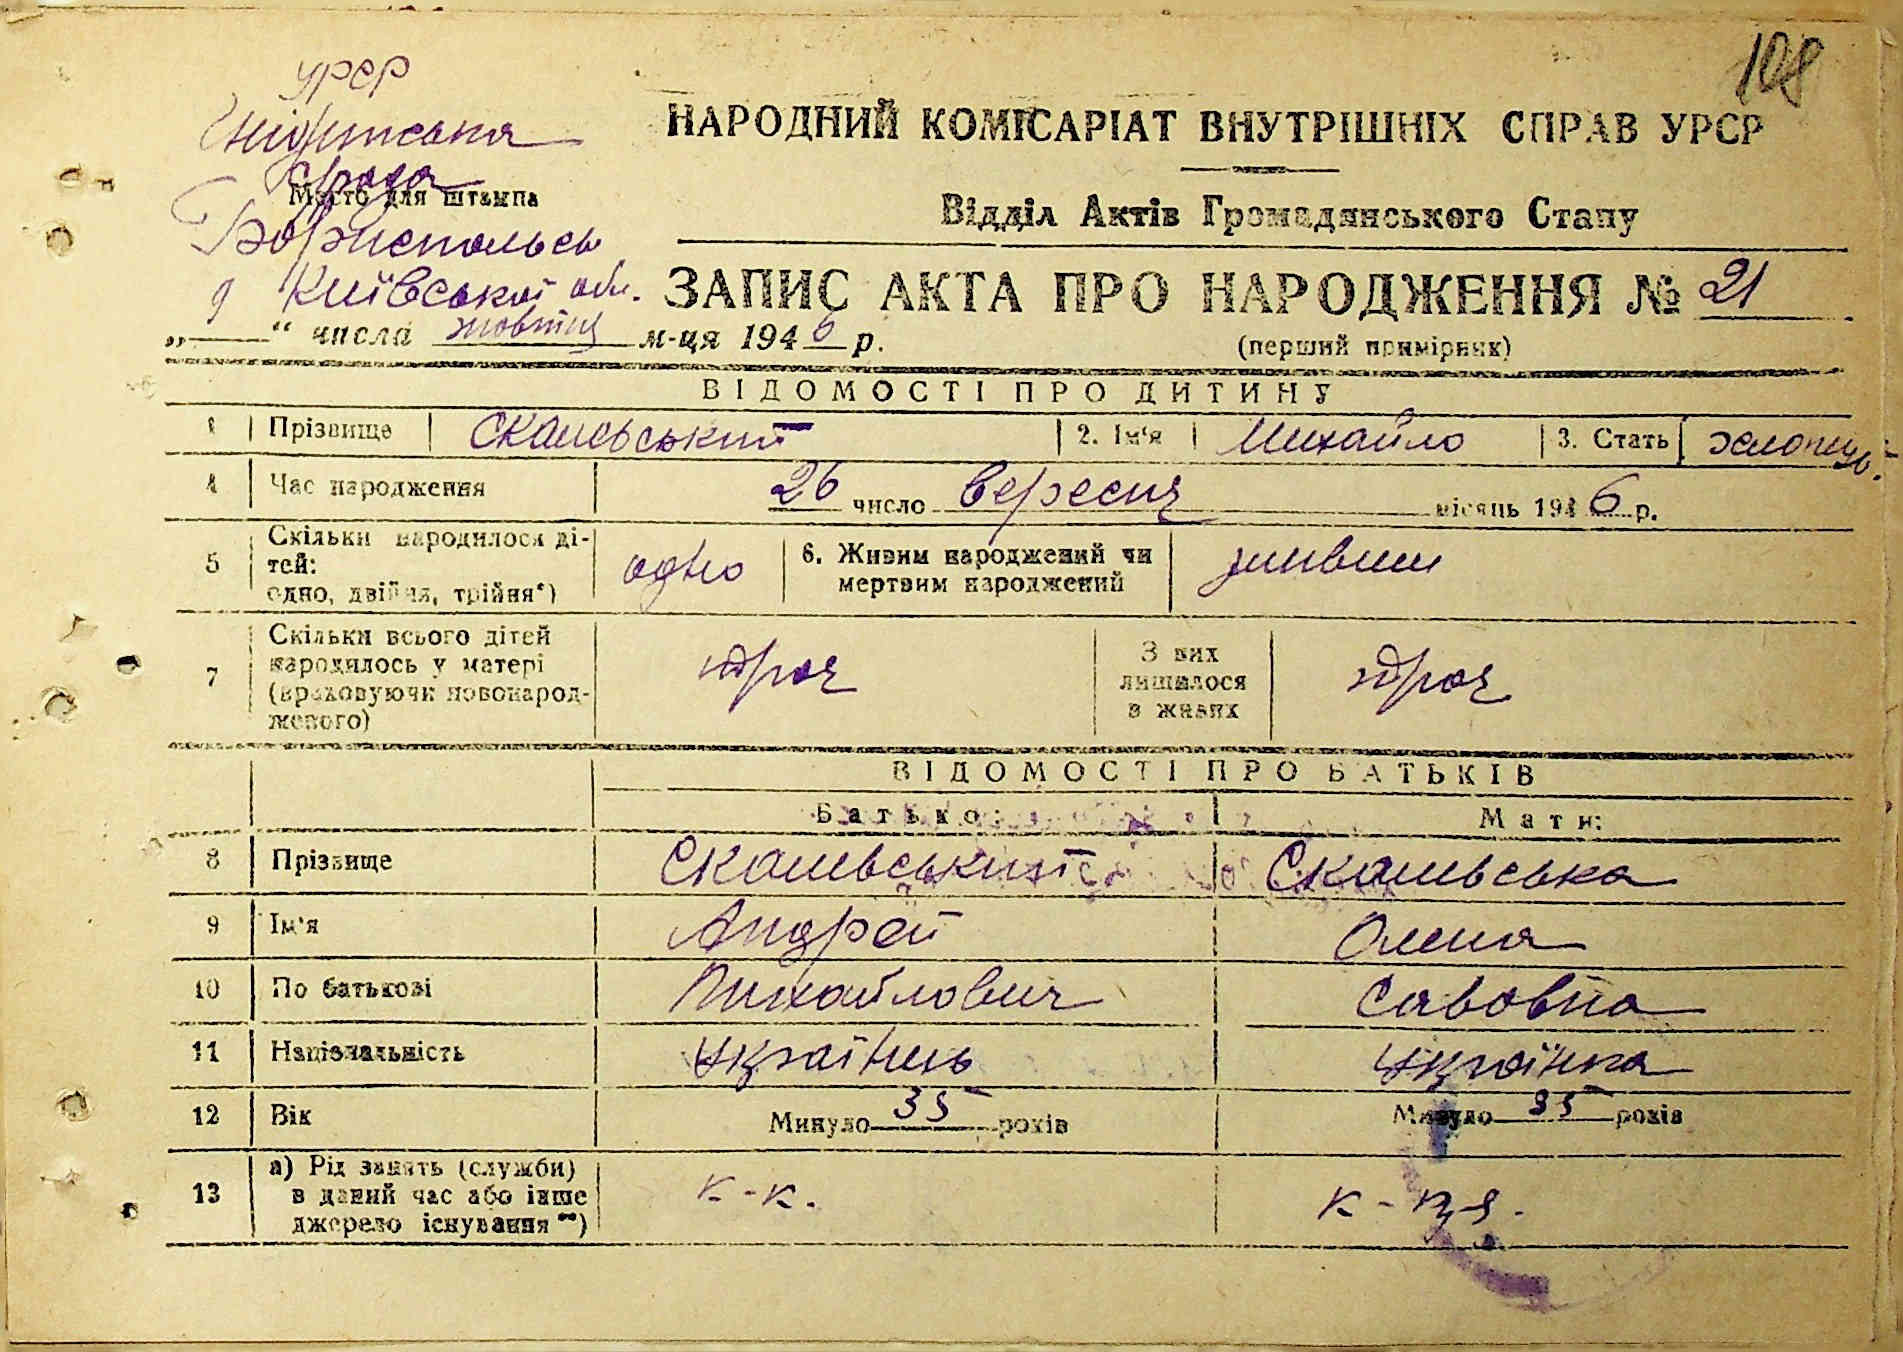 108
УРСР
НАРОДНИЙ КОМІСАРІАТ ВНУТРІШНІХ СПРАВ УРСР
Місто для штампа
Відділ Актів Громадянського Стану
Київської обл.
ЗАПИС АКТА ПРО НАРОДЖЕННЯ № 21
„ 9 “ числа жовтня м-ця 1946 р.
(перший примірник)
ВІДОМОСТІ ПРО ДИТИНУ
1 Прізвище 2. Ім'я Михайло 3. Стать хлопець
4 Час народження 26 число вересня місяць 1946 р.
5 Скільки народилося ді-
тей:
одно, двійня, трійня*) одно 6. Живим народжений чи
мертвим народжений живим
7 Скільки всього дітей
народилось у матері
(враховуючи новонарод-
женого) троє З них
лишилося
в живих троє
ВІДОМОСТІ ПРО БАТЬКІВ
Батько: Мати:
8 Прізвище
9 Ім'я Андрей Олена
10 По батькові Михайлович Савовна
11 Національність Українець Українка
12 Вік Минуло 35 років Минуло 35 років
13 а) Рід занять (служби)
в даний час або інше
джерело існування **) к-к. к-ця.